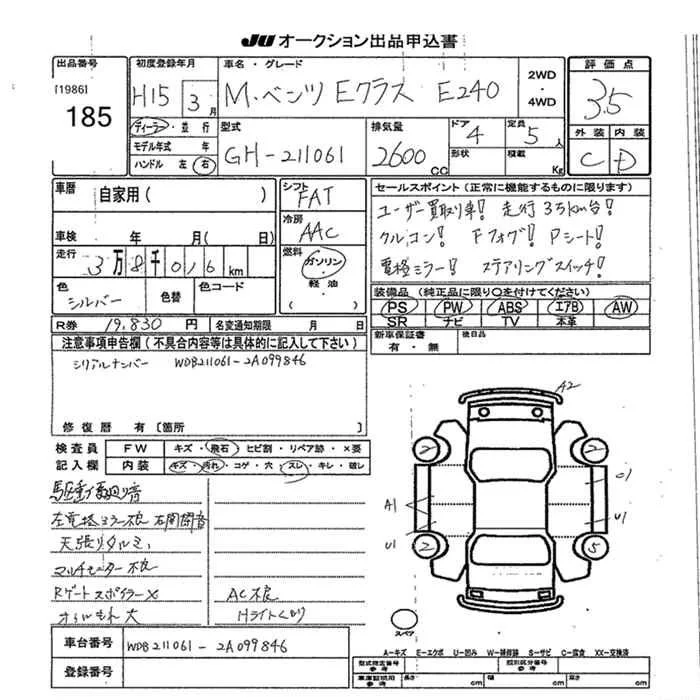 JU オークション出品申込書
出品番号 初度登録年月 車名・グレード 2WD・4WD 評価点
[1986] 185 H15 3月 M.ベンツ Eクラス E240 3.5
ディーラー・並行 型式 排気量 ドア 4 定員 5人 外装 内装
モデル年式 年 GH-211061 2600cc 形状 積載 Kg C D
ハンドル 左 右
車歴 自家用( ) シフト FAT セールスポイント(正常に機能するものに限ります)
冷房 AAC ユーザー買取り車! 走行35km台!
車検 年 月( 日) クルコン! Fフォグ! Pシート!
走行 3万8千016km 燃料 ガソリン・軽油 電格ミラー! ステアリングスイッチ!
色 シルバー 色替 色コード ( ) 装備品(純正品に限り○を付けてください)
PS PW ABS エアB AW
SR ナビ TV 本革
R券 19,830円 名変通知期限 月 日 新車保証書 有・無 後日品
注意事項申告欄(不具合内容等は具体的に記入して下さい)
シリアルナンバー WDB211061-2A099846
修復歴 有〔箇所 〕
検査員 FW キズ・飛石・ヒビ割・リペア跡・×要
記入欄 内装 キズ・汚れ・コゲ・穴・スレ・キレ・破レ
左電格ミラー不良 右開閉音
天張りタルミ
マルチモーター不良
Rゲートスポイラー× AC不良
オイルもれ大 Hライトくもり
A2
2 2
A1 C1
U1 U1
2 5
スペア
車台番号 WDB211061-2A099846
登録番号
A−キズ E−エクボ U−凹み W−補修跡 S−サビ C−腐食 XX−交換済
型式指定番号 参考 類別区分番号 参考
車庫証明用 参考 長さ cm 幅 cm 高さ cm